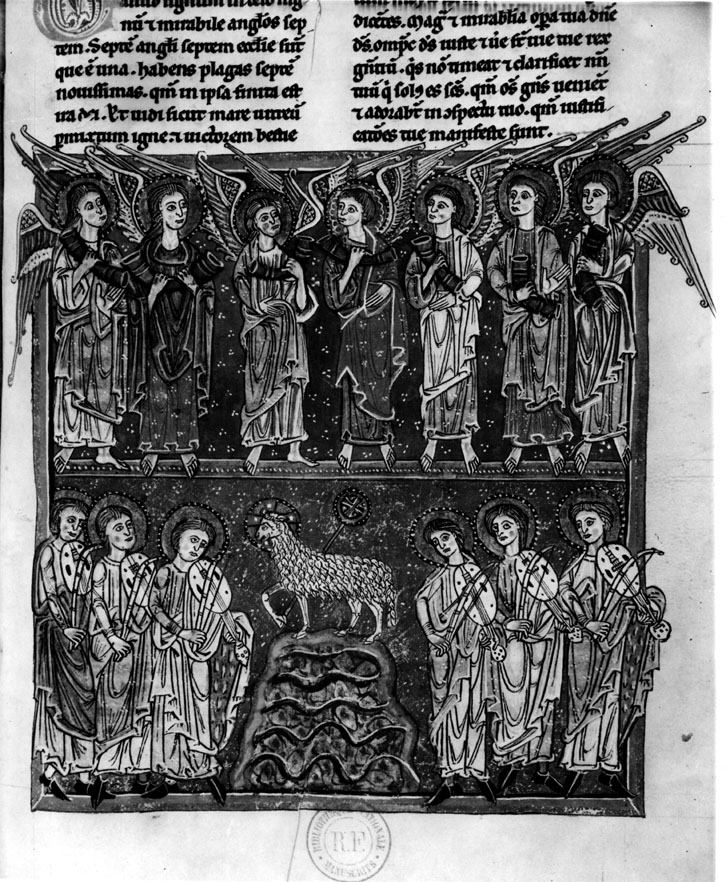 aliud signum in celo mag
nũ ⁊ mirabile angłos sep
tem. Septẽ angłi septem eccłie sũt
que ẽ una. habens plagas septẽ
nouissimas. qm̃ in ipsa finita est
ira d̃i. Et uidi sicut mare uitreũ
pmixtum igne ⁊ uictorem bestie
dicẽtes. Mag̃ ⁊ mirabilia opa tua dñe
ds̃. omp̃c ds̃ iuste ⁊ uẽ st̃ uie tue rex
gẽtiũ. qis nõ timeat ⁊ clarificet nm̃
tuũ q̃ solꝰ es sc̃s. qm̃ os̃ gñs ueniẽt
⁊ adorabt̃ in ꝯspectu tuo. qm̃ iustifi
catões tue manifeste sunt.
BIBLIOTHÈQUE NATIONALE
R.F.
MANUSCRITS